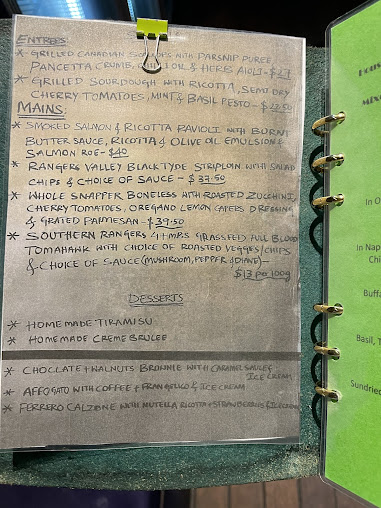 ENTREES:
* GRILLED CANADIAN WITH PARSNIP PUREE,
PANCETTA CRUMB, OIL & HERBS AIOLI -
* GRILLED SOURDOUGH WITH RICOTTA, SEMI DRY
CHERRY TOMATOES, MINT & BASIL PESTO - $22.50
MAINS:
* SMOKED SALMON & RICOTTA RAVIOLI WITH BURNT
BUTTER SAUCE, RICOTTA & OLIVE OIL EMULSION &
SALMON ROE - $40
* RANGERS VALLEY BLACK TYDE STRIPLOIN WITH SALAD
CHIPS & CHOICE OF SAUCE - $37.50
* WHOLE SNAPPER BONELESS WITH ROASTED ZUCCHINI,
CHERRY TOMATOES, OREGANO LEMON CAPERS DRESSING
& GRATED PARMESAN - $39.50
* SOUTHERN RANGERS GRASSFED FULL BLOOD
TOMAHAWK WITH CHOICE OF ROASTED VEGGIES/CHIPS
& CHOICE OF SAUCE (MUSHROOM, PEPPER & DIANE) -
$13 per 100g
DESSERTS
* HOMEMADE TIRAMISU
* HOMEMADE CREME BRULEE
* CHOCLATE + WALNUTS BROWNIE WITH CARAMEL SAUCE &
ICE CREAM
* AFFOGATO WITH COFFEE + FRANGELICO & ICE CREAM
* FERRERO CALZONE WITH NUTELLA RICOTTA + STRAWBERRIES & ICECREAM
In O
In Nap
Chi
Buffa
Basil, T
Sundried